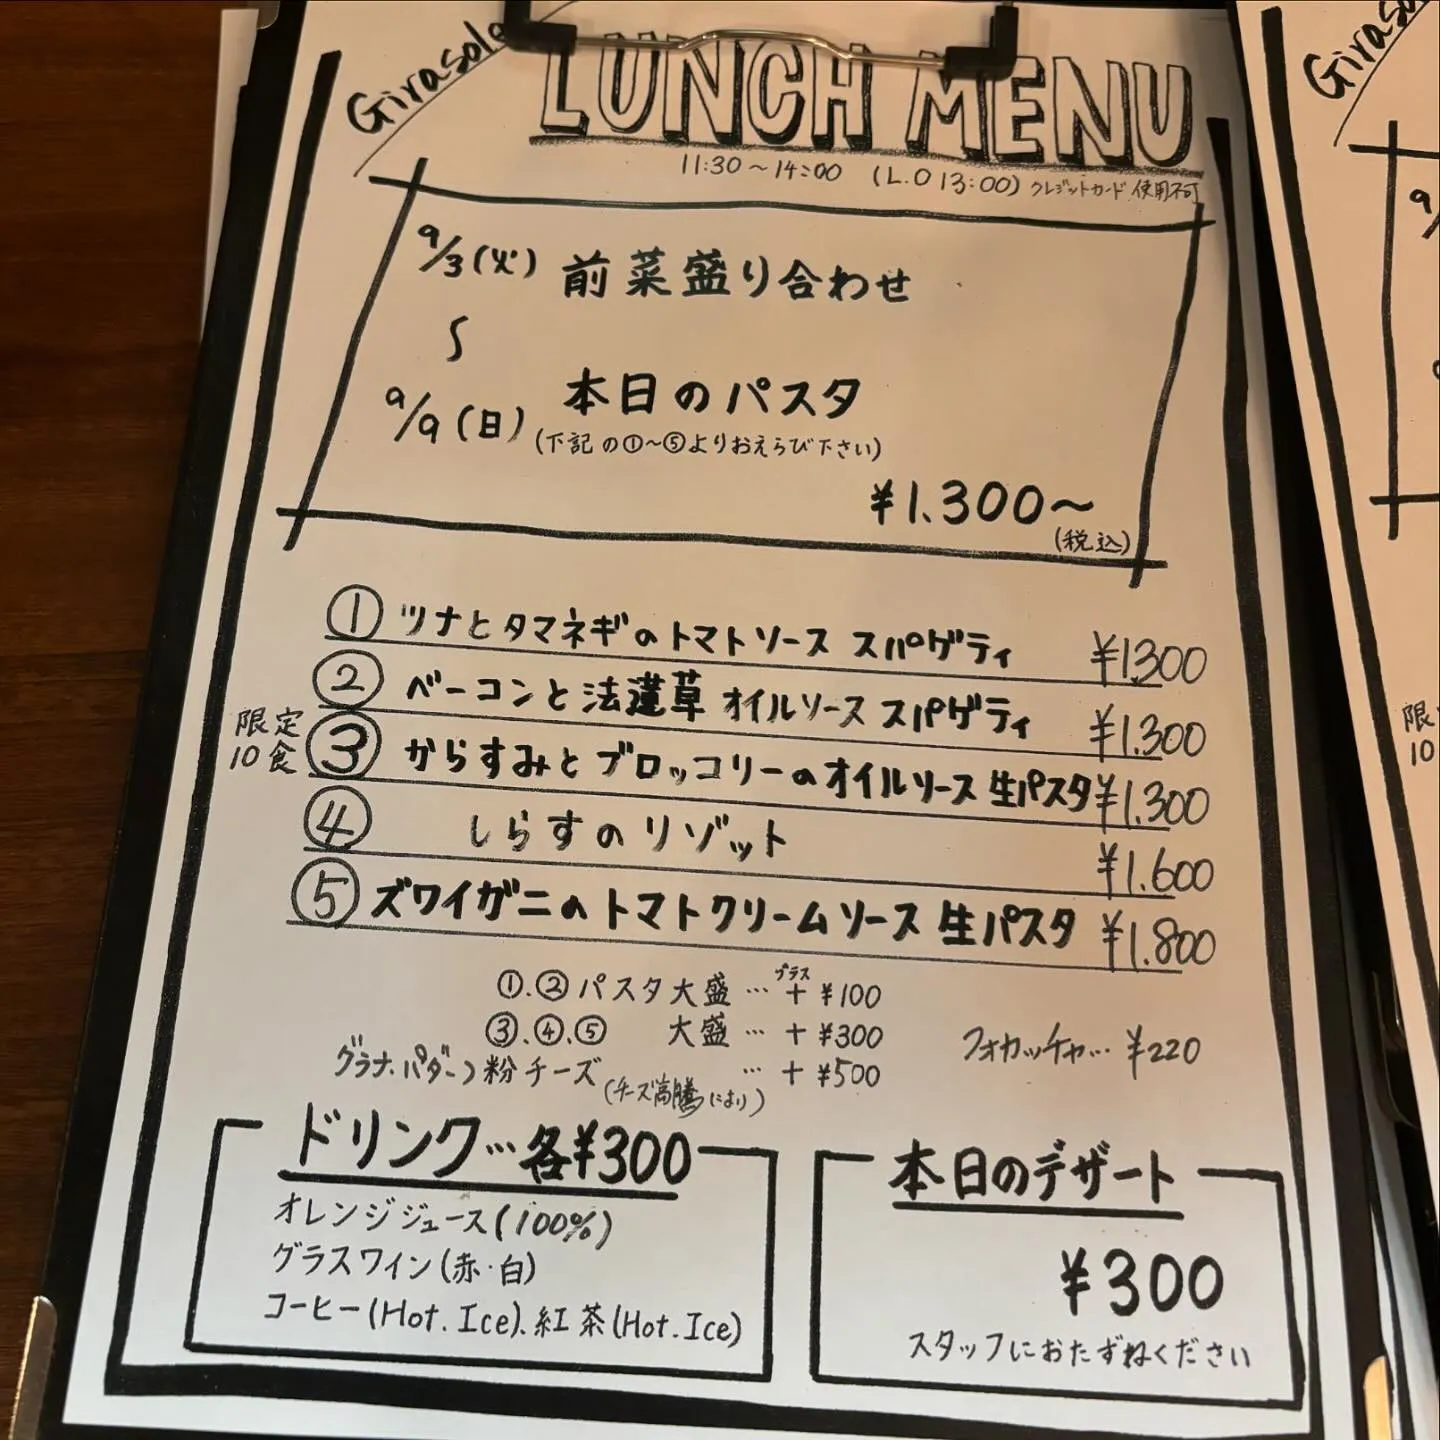 Girasole
LUNCH MENU
11:30〜14:00 (L.O 13:00) クレジットカード使用不可
9/3(火) 前菜盛り合わせ
〜
9/9(日) 本日のパスタ
(下記の①〜⑤よりおえらび下さい)
¥1.300〜
(税込)
① ツナとタマネギのトマトソース スパゲティ ¥1300
② ベーコンと法蓮草 オイルソース スパゲティ ¥1.300
限定10食 ③ からすみとブロッコリーのオイルソース 生パスタ ¥1.300
④ しらすのリゾット ¥1.600
⑤ ズワイガニのトマトクリームソース 生パスタ ¥1.800
①.② パスタ大盛 … プラス + ¥100
③.④.⑤ 大盛 … + ¥300
フォカッチャ… ¥220
グラナ.パダーノ粉チーズ … + ¥500
(チーズ高騰により)
ドリンク…各¥300
オレンジジュース(100%)
グラスワイン(赤・白)
コーヒー(Hot.Ice).紅茶(Hot.Ice)
本日のデザート
¥300
スタッフにおたずねください
Giras
9/
限
10